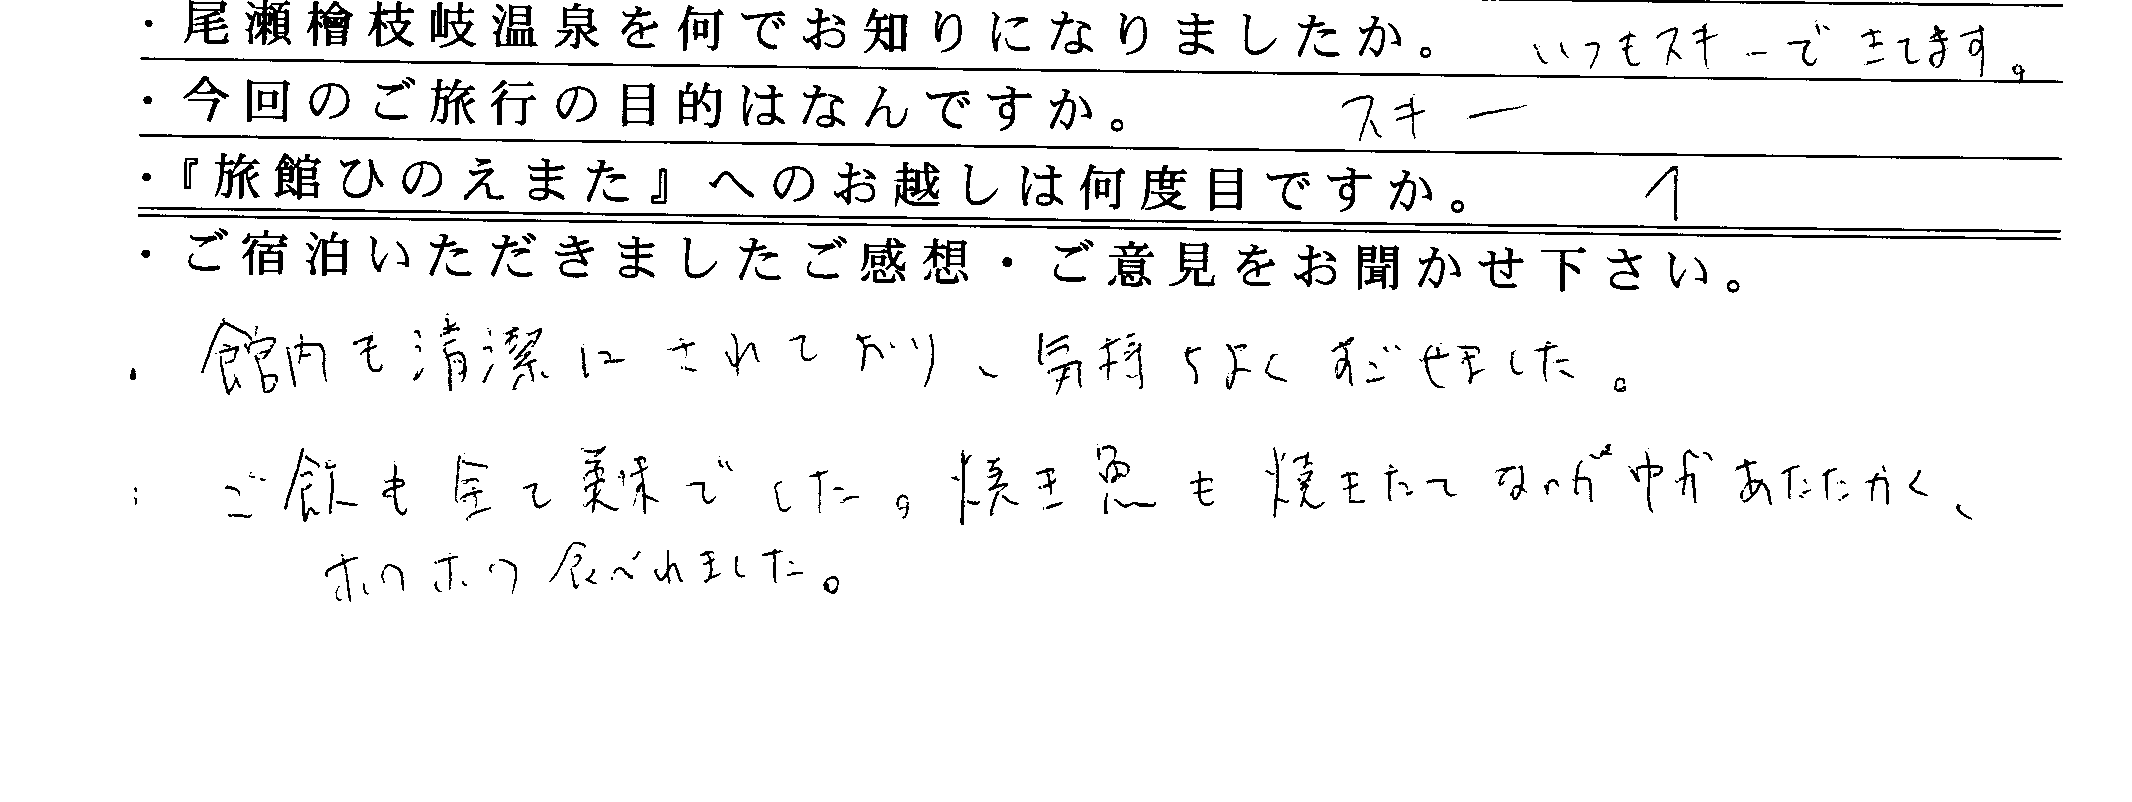 ・尾瀬檜枝岐温泉を何でお知りになりましたか。 いつもスキーできてます。
・今回のご旅行の目的はなんですか。 スキー
・『旅館ひのえまた』へのお越しは何度目ですか。 1
・ご宿泊いただきましたご感想・ご意見をお聞かせ下さい。
・館内も清潔にされており、気持ちよくすごせました。
・ご飯も全て美味でした。焼き魚も焼きたてなのか中があたたかく、
ホクホク食べれました。